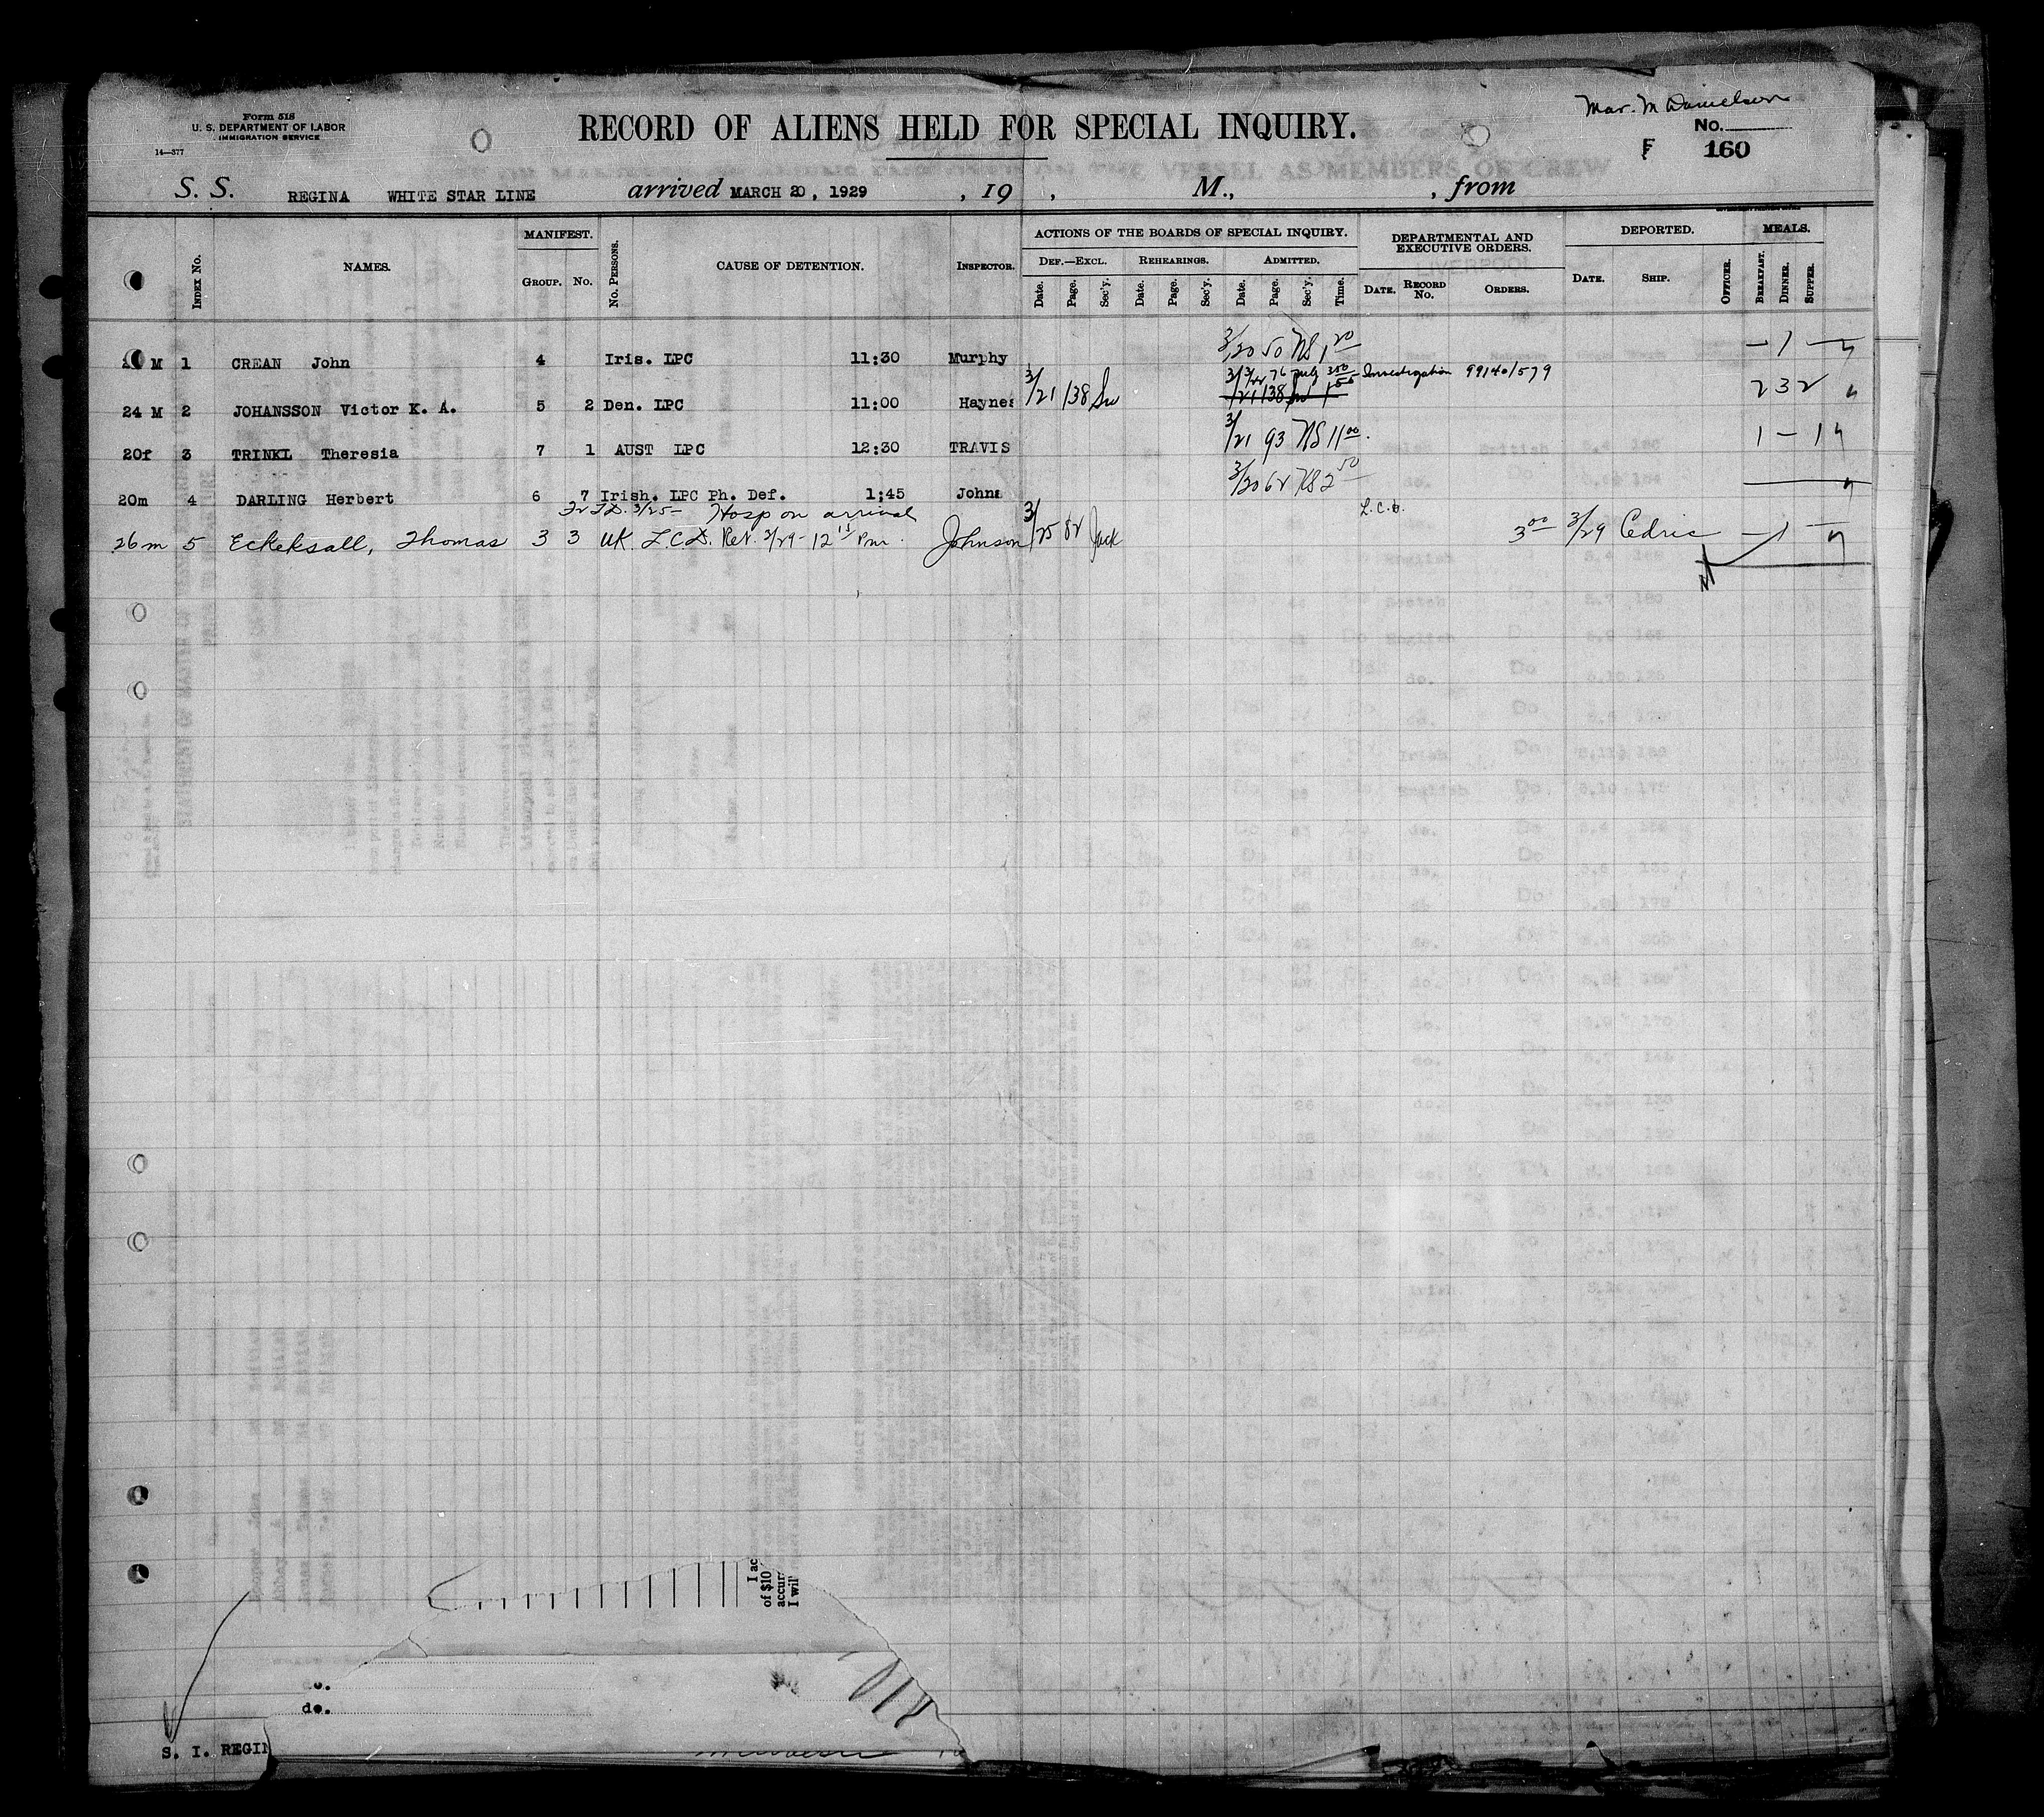 Form 518
U. S. DEPARTMENT OF LABOR
IMMIGRATION SERVICE
14—377
RECORD OF ALIENS HELD FOR SPECIAL INQUIRY.
Mar. M Danielson
No.
F 160
S. S. REGINA WHITE STAR LINE arrived MARCH 20, 1929 , 19 , M., , from
MANIFEST. ACTIONS OF THE BOARDS OF SPECIAL INQUIRY. DEPARTMENTAL AND EXECUTIVE ORDERS. DEPORTED. MEALS.
Index No. NAMES. GROUP. No. No. Persons. CAUSE OF DETENTION. INSPECTOR. DEF.—EXCL. REHEARINGS. ADMITTED.
Date. Page. Sec'y. Date. Page. Sec'y. Date. Page. Sec'y. Time. DATE. RECORD No. ORDERS. DATE. SHIP. OFFICER. BREAKFAST. DINNER. SUPPER.
M 1 CREAN John 4 Iris. LPC 11:30 Murphy 3/20 50 NS 1 20 – 1 –
24 M 2 JOHANSSON Victor K. A. 5 2 Den. LPC 11:00 Haynes 3/21 138 Investigation 99140/579 2 3 2
20f 3 TRINKL Theresia 7 1 AUST LPC 12:30 TRAVIS 3/21 93 NS 11 00 1 – 1
20m 4 DARLING Herbert 6 7 Irish. LPC Ph. Def. 1;45 Johns 3/20 62 NS 2 50
3/25 – Hosp on arrival
26 m 5 Eckeksall, Thomas 3 3 UK L.C.D. Ret. 3/29 – 12 15 Pm. Johnson 3/25 82 Jack 3 00 3/29 Cedric – 1 –
I ac
of $10
accur
I wil
do.
do.
S. I. REGIN